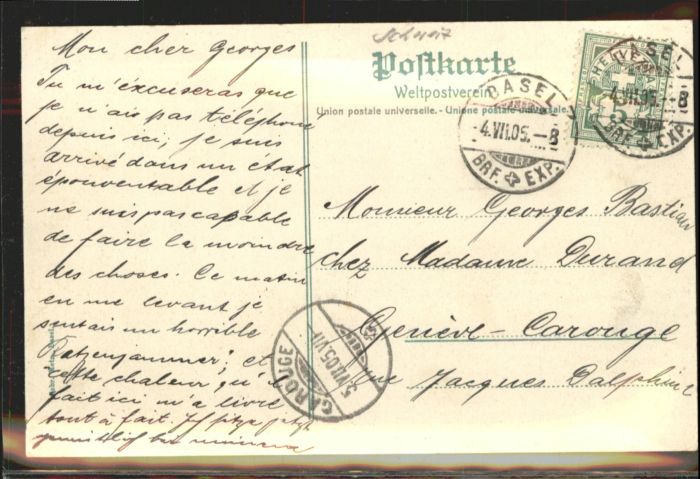 Schweiz
Postkarte
Weltpostverein
Union postale universelle. - Unione postale universale.
BASEL
4.VII.05.-8
BRF. EXP.
BASEL
4.VII.05.-8
BRF. EXP.
HELVETIA
5
Mon cher Georges
Tu m'éxcuseras que
je n'ais pas téléphone
depuis ici; je suis
arrivé dans un état
épouventable et je
ne suis pas capable
de faire la moindre
des choses. Ce matin
en me levant je
sentais un horrible
Katzenjammer; et
cette chaleur qu'il
fait ici m'a livré
tout à fait. Ich sitze jetzt
gemütlich bei
Monsieur Georges Bastian
chez Madame Durand
Genève-Carouge
rue Jacques Dalphin
CAROUGE
5.VII.05.VII-